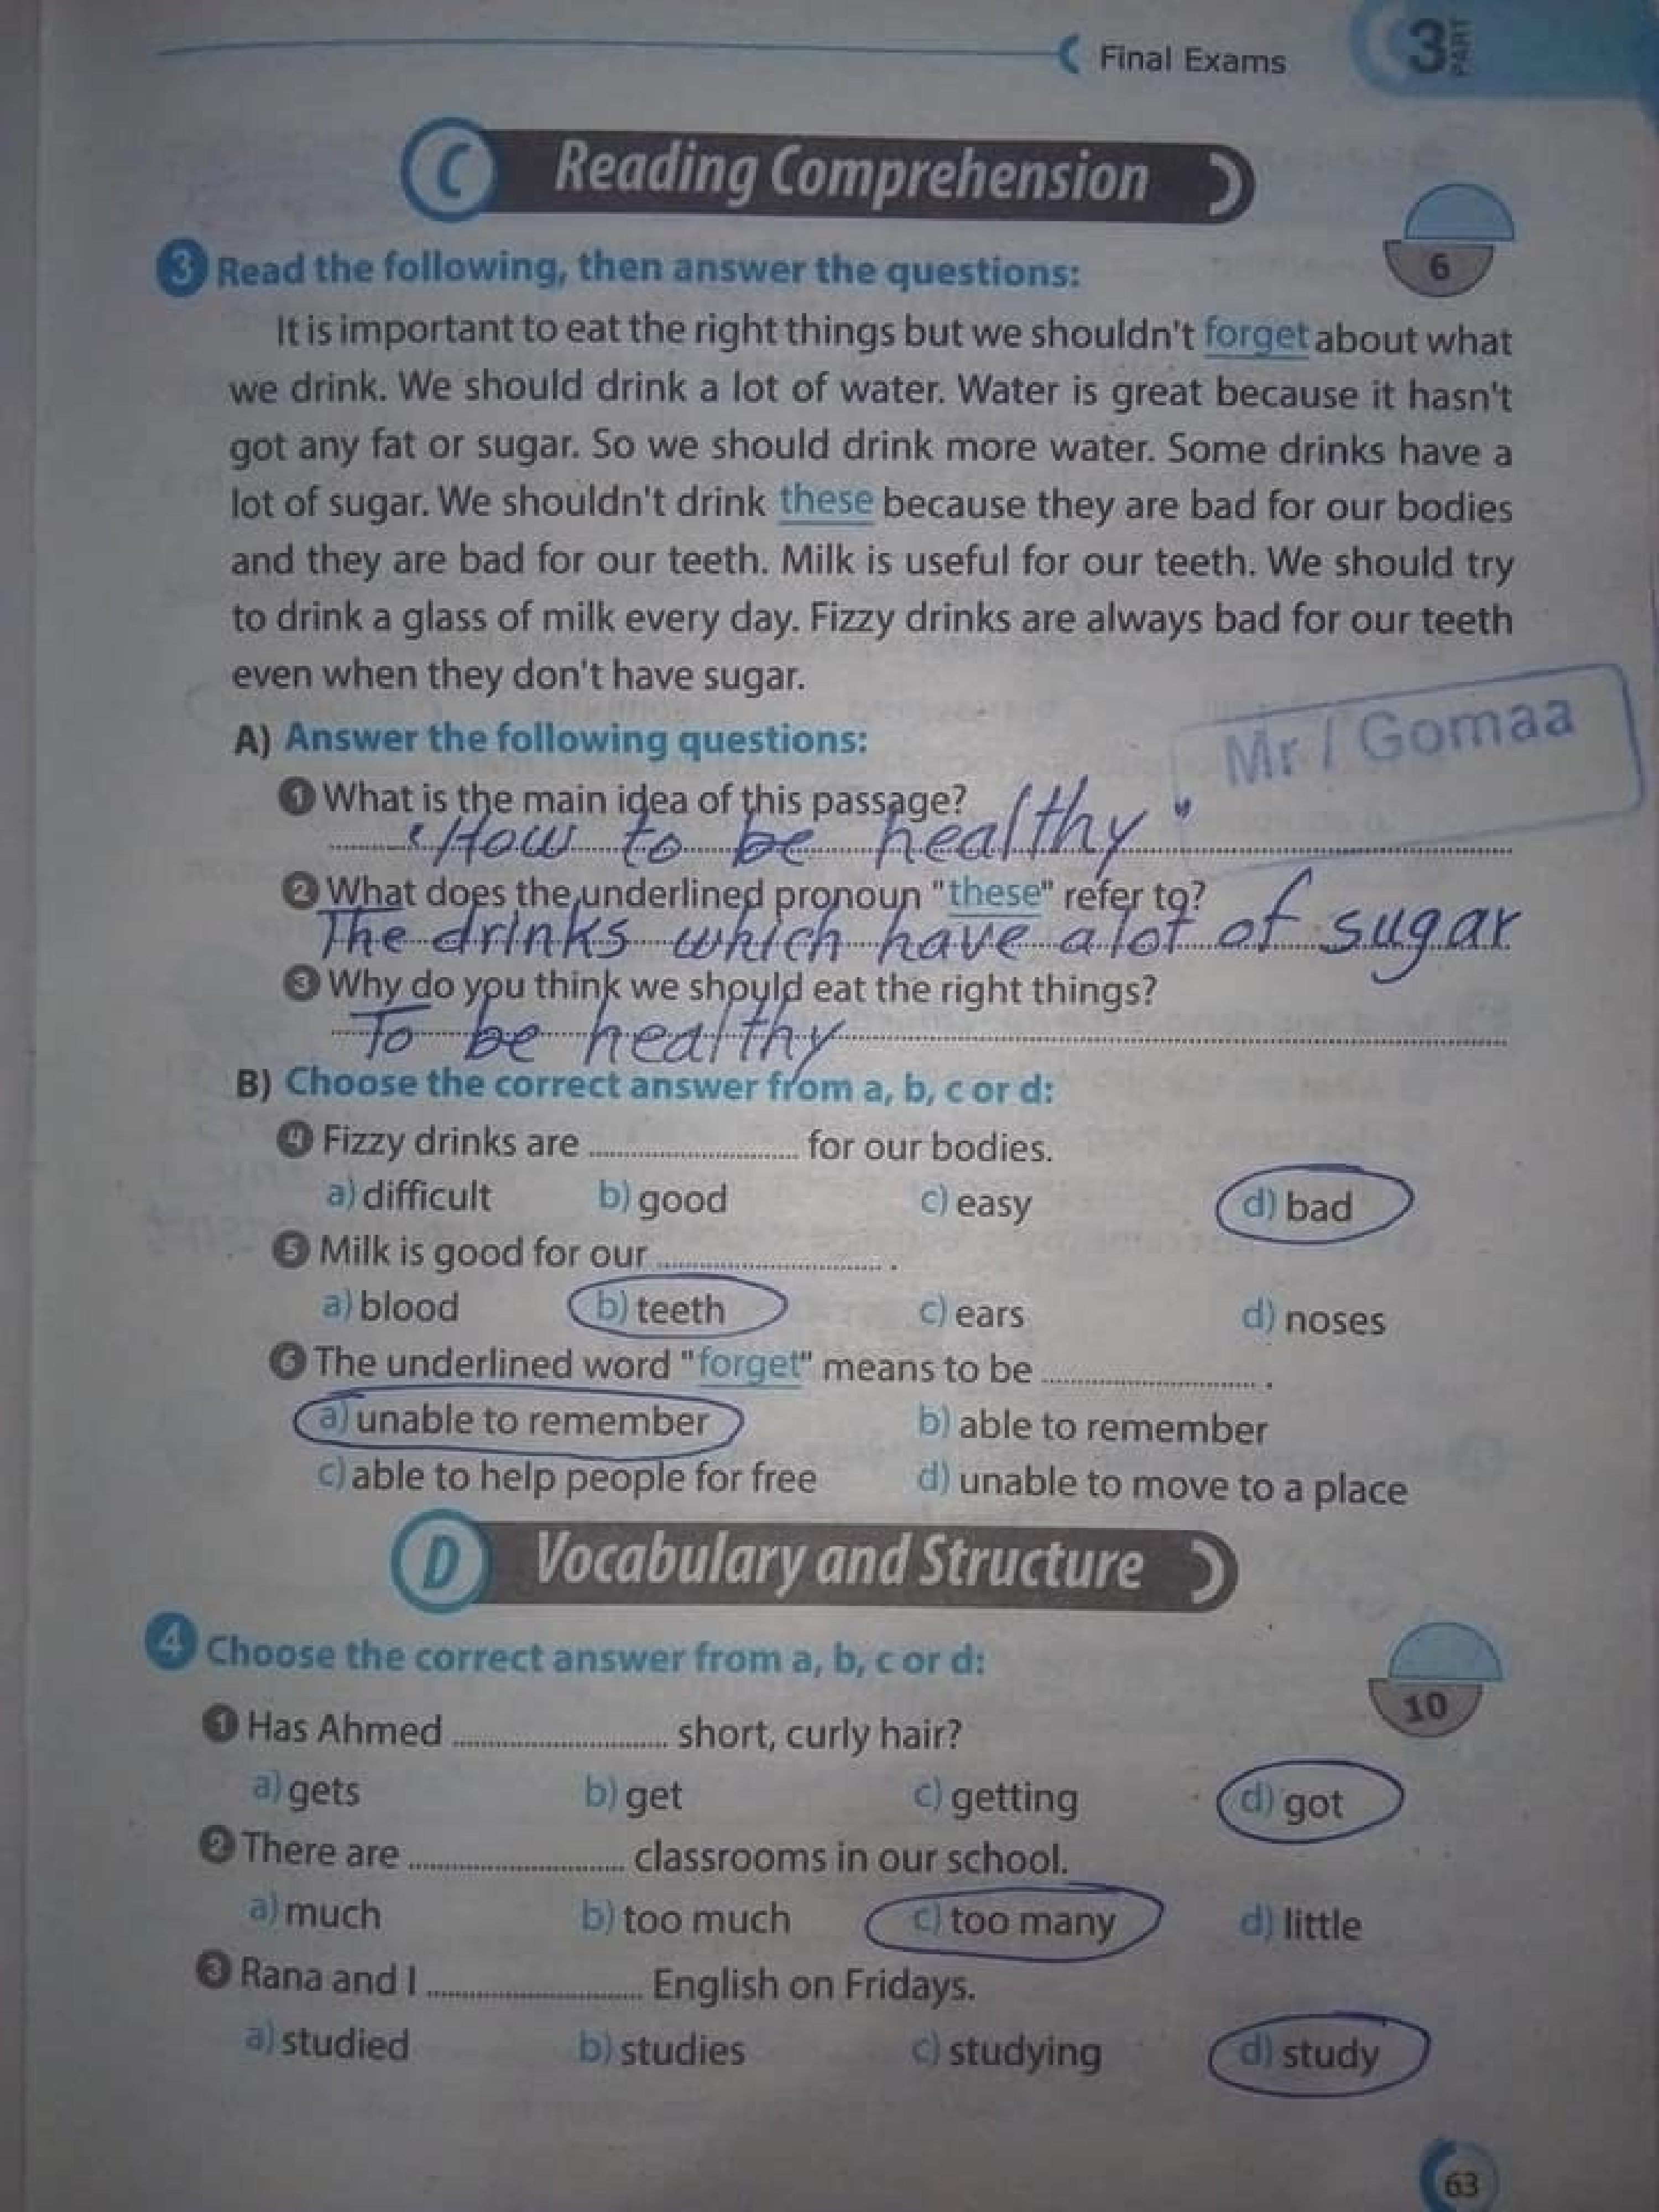 Final Exams
3 PART
C Reading Comprehension
6
3 Read the following, then answer the questions:
It is important to eat the right things but we shouldn't forget about what
we drink. We should drink a lot of water. Water is great because it hasn't
got any fat or sugar. So we should drink more water. Some drinks have a
lot of sugar. We shouldn't drink these because they are bad for our bodies
and they are bad for our teeth. Milk is useful for our teeth. We should try
to drink a glass of milk every day. Fizzy drinks are always bad for our teeth
even when they don't have sugar.
Mr / Gomaa
A) Answer the following questions:
1 What is the main idea of this passage?
"How to be healthy"
2 What does the underlined pronoun "these" refer to?
The drinks which have a lot of sugar
3 Why do you think we should eat the right things?
To be healthy
B) Choose the correct answer from a, b, c or d:
4 Fizzy drinks are .................... for our bodies.
a) difficult b) good c) easy d) bad
5 Milk is good for our .................... .
a) blood b) teeth c) ears d) noses
6 The underlined word "forget" means to be .................... .
a) unable to remember b) able to remember
c) able to help people for free d) unable to move to a place
D Vocabulary and Structure
4 Choose the correct answer from a, b, c or d:
10
1 Has Ahmed .................... short, curly hair?
a) gets b) get c) getting d) got
2 There are .................... classrooms in our school.
a) much b) too much c) too many d) little
3 Rana and I .................... English on Fridays.
a) studied b) studies c) studying d) study
63